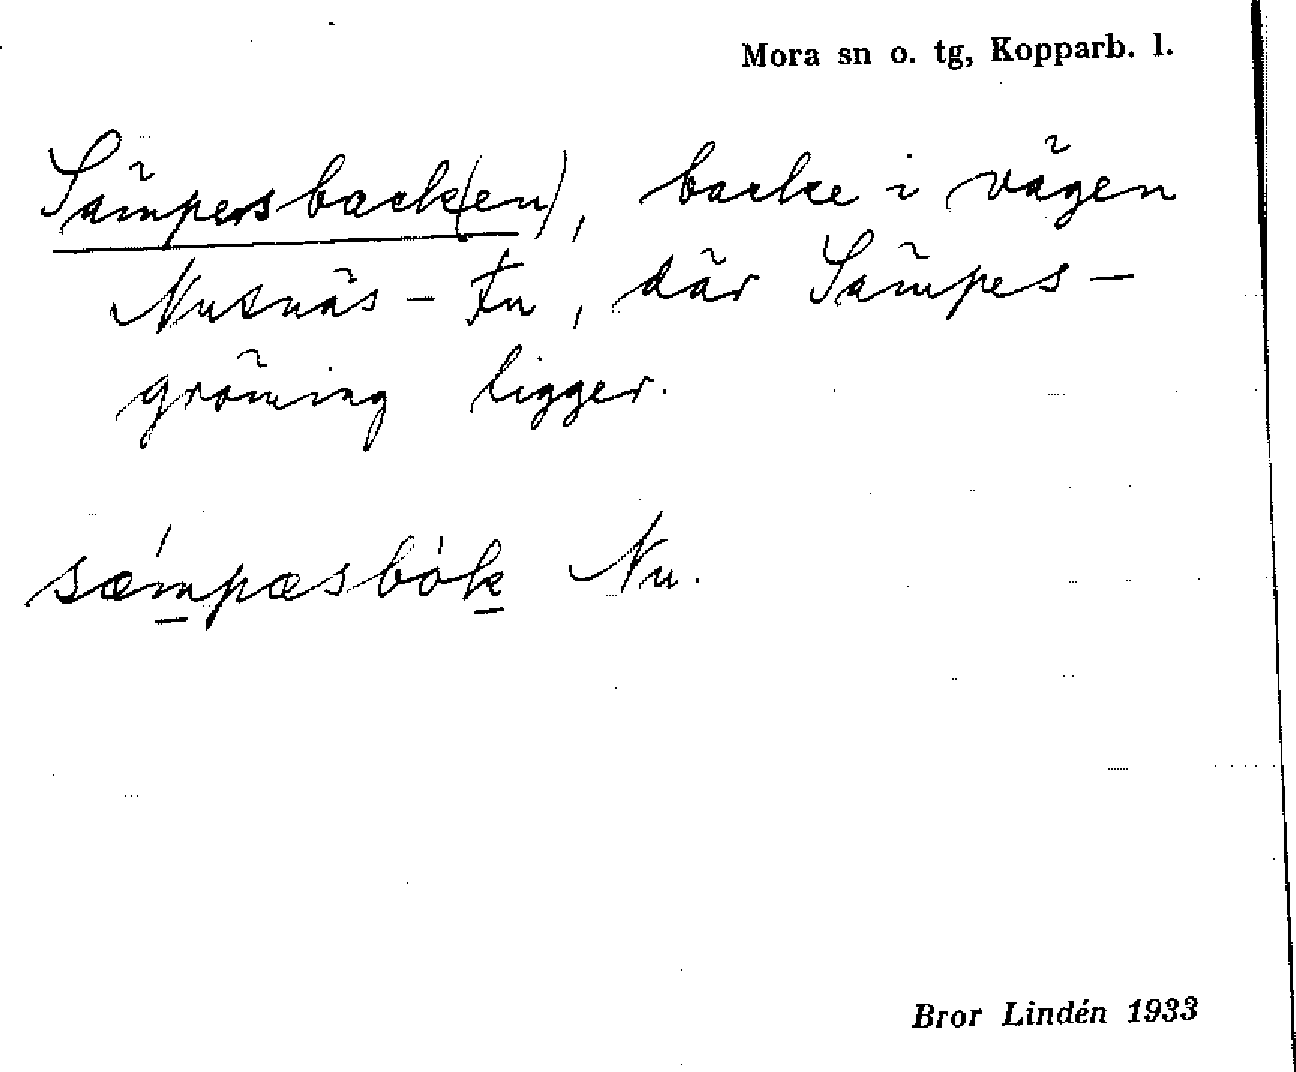 Mora sn o. tg, Kopparb. l.
Sämpersback(en), backe i vägen
Nusnäs – Fu, där Sämpes-
gröning ligger.
sæmpæsbók Nu.
Bror Lindén 1933